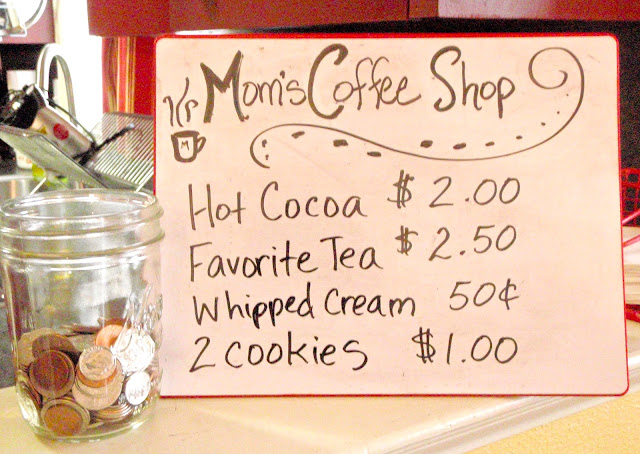 Mom's Coffee Shop
M
Hot Cocoa $ 2.00
Favorite Tea $ 2.50
Whipped Cream 50¢
2 cookies $1.00